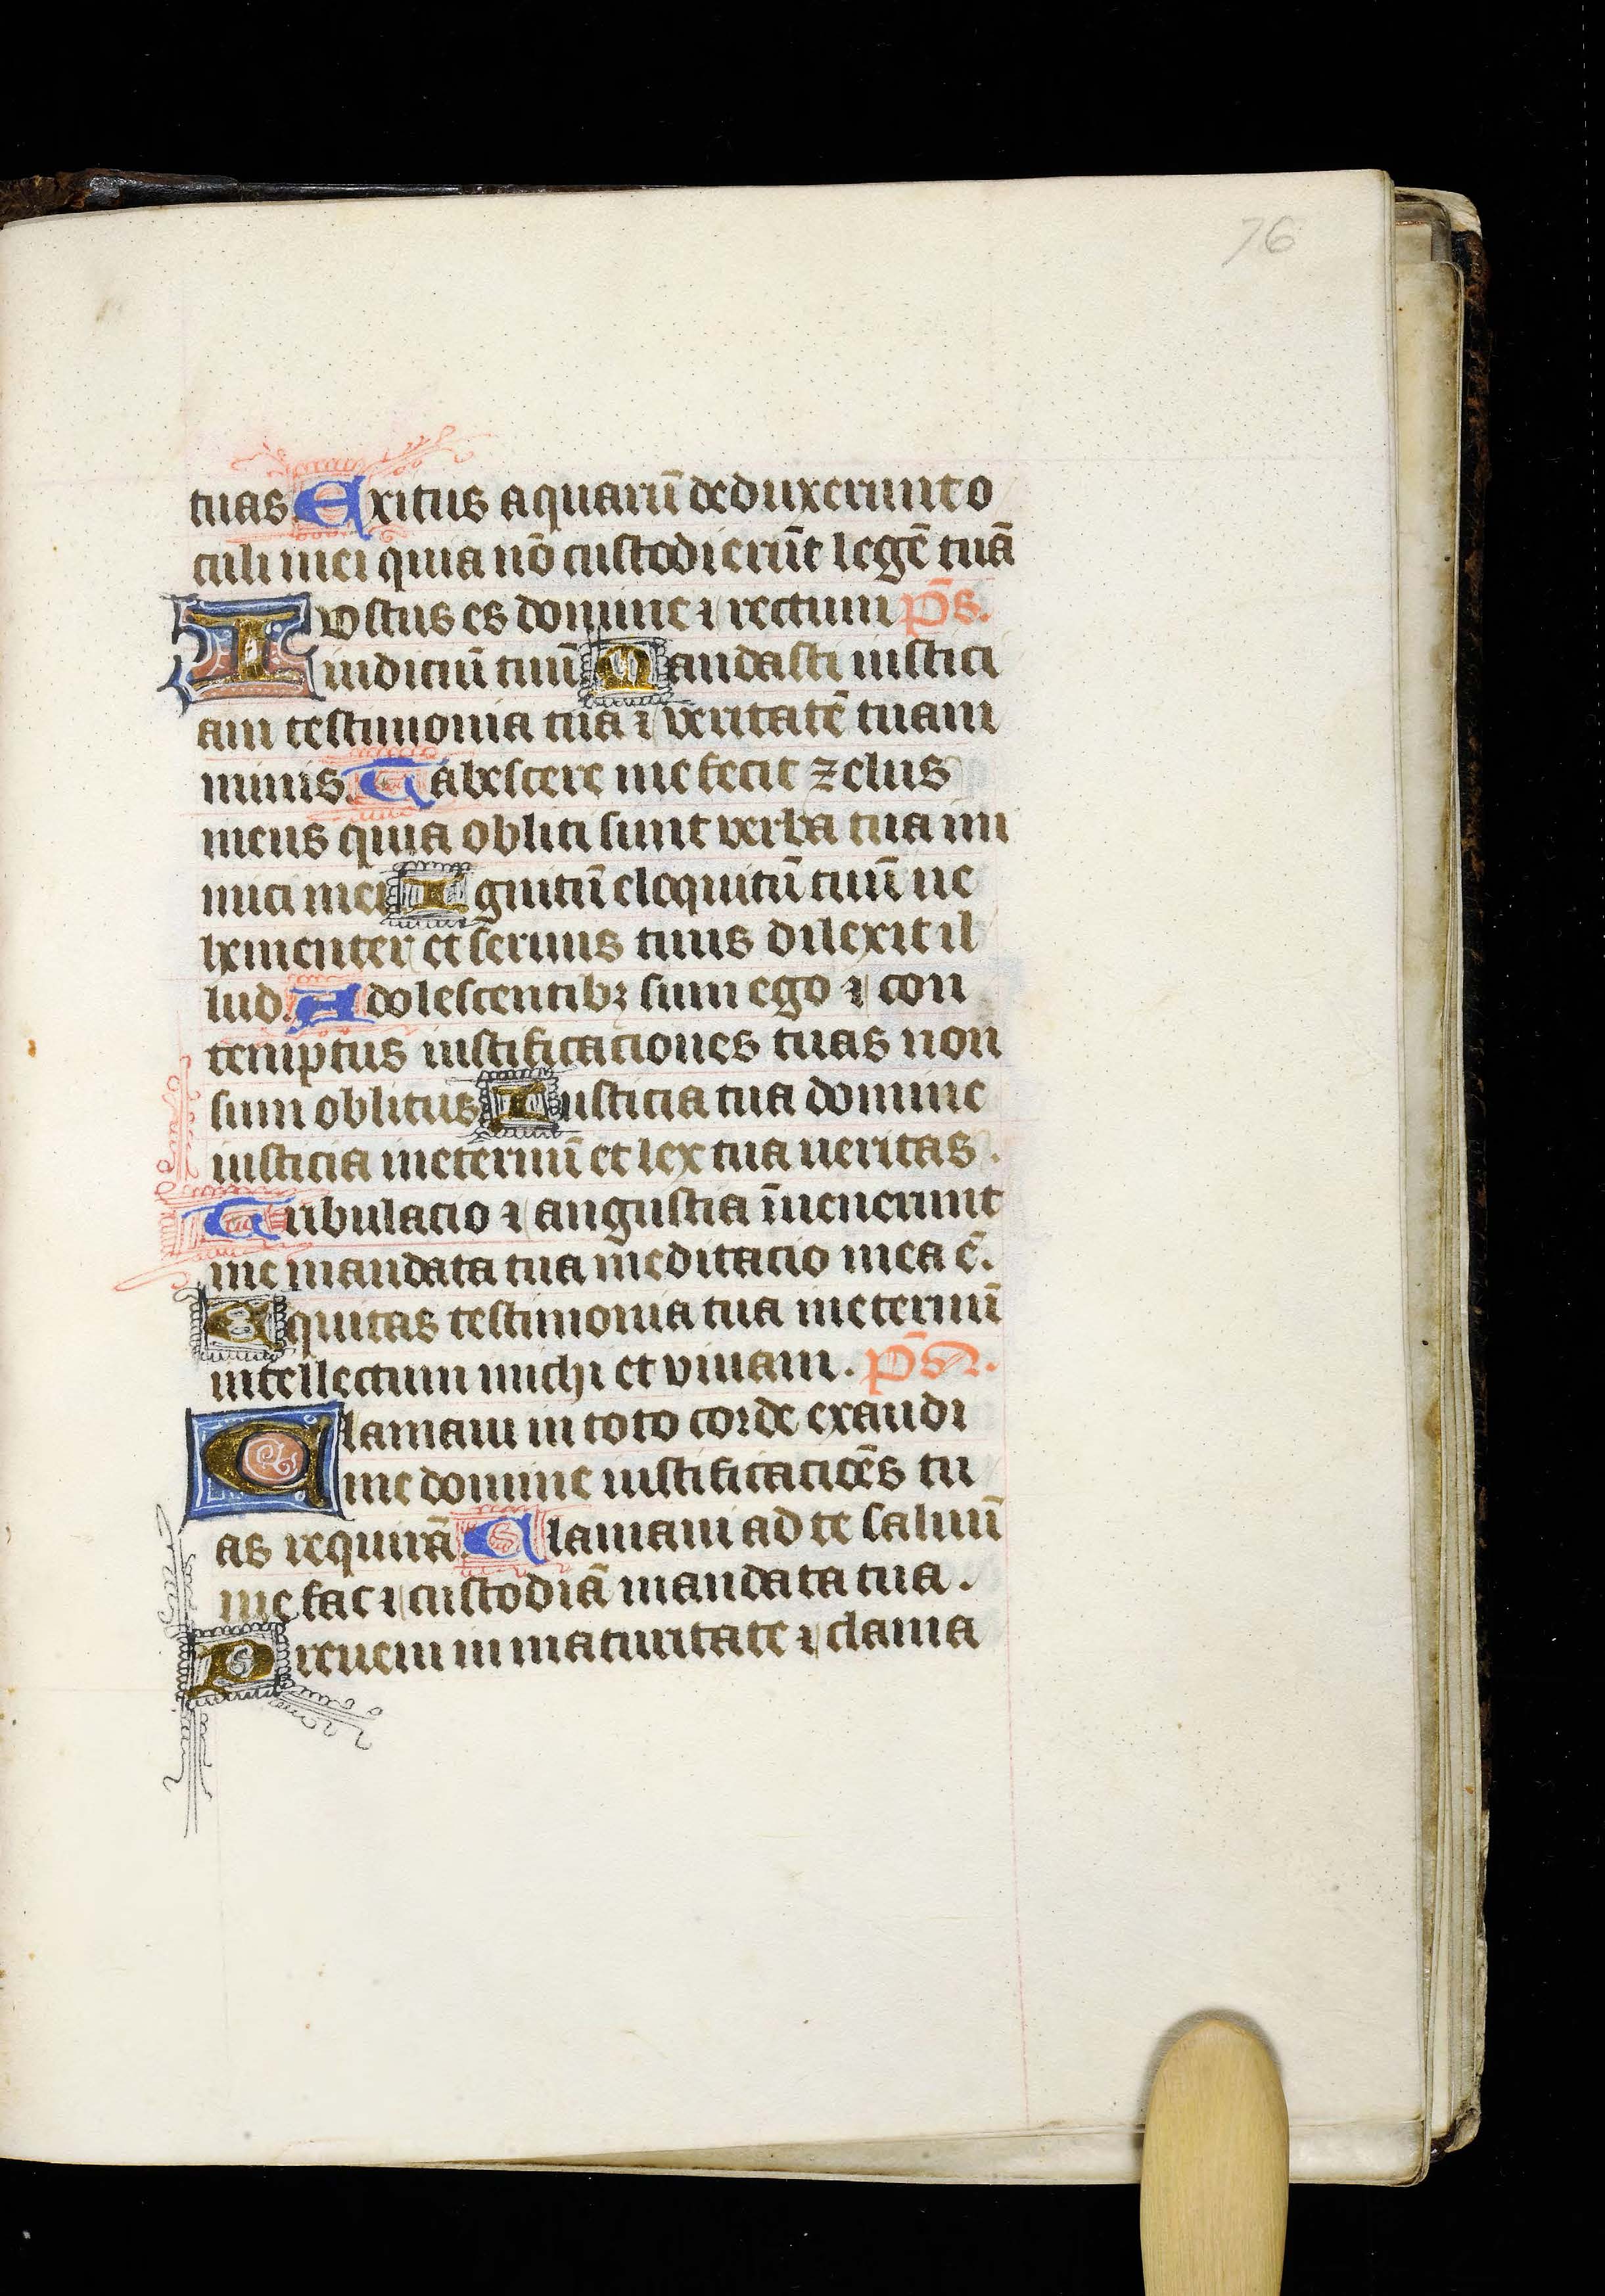 76
tuas Exitus aquarū deduxerunt o
culi mei quia nō custodierūt legē tuā
Iustus es domine ⁊ rectum p̄s.
iudiciū tuū Mandasti iustici
am testimonia tua ⁊ veritatē tuam
nimis. Tabescere me fecit zelus
meus quia obliti sunt verba tua ini
mici mei Ignitū eloquitū tuū ve
hementer et seruus tuus dilexit il
lud. Adolescentibꝫ sum ego ⁊ con
temptus iustificaciones tuas non
sum oblitus Iusticia tua domine
iusticia ineternū et lex tua ueritas.
Tribulacio ⁊ angustia īuenerunt
me mandata tua meditacio mea ē.
Equitas testimonia tua ineternū
intellectum michi et viuam. p̄s.
Clamaui in toto corde exaudi
me domine iustificacioēs tu
as requirā. Clamaui ad te saluū
me fac ⁊ custodiā mandata tua.
Preueni in maturitate ⁊ clama